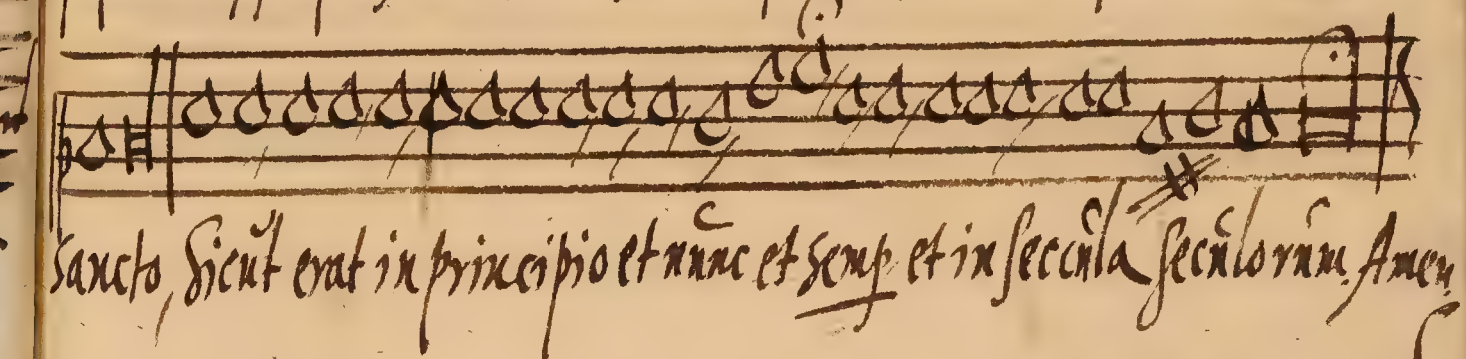 sancto, Sicut erat in principio et nunc et semp et in seccula seculorum. Amen